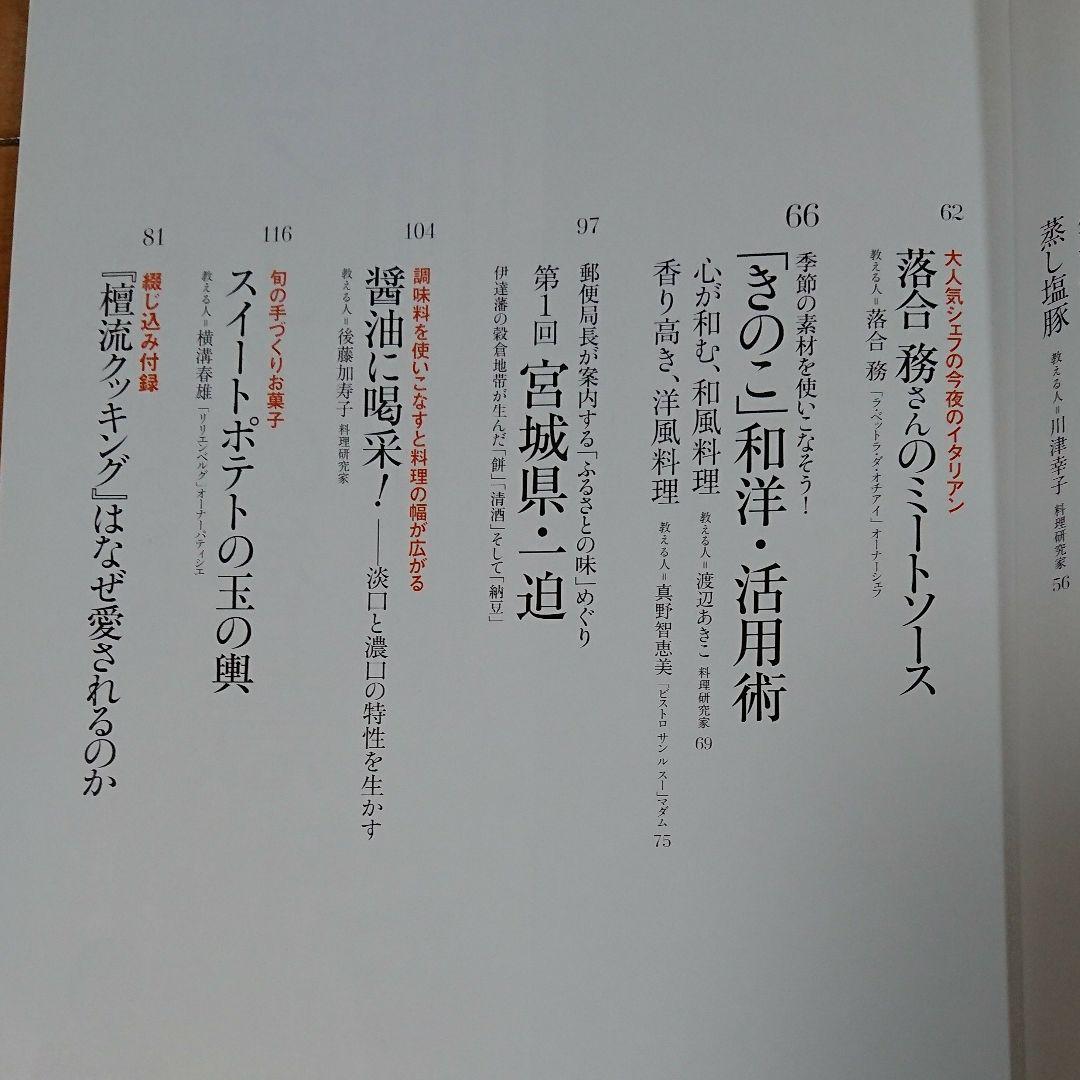 蒸し塩豚
教える人=川津幸子 料理研究家 56
62
大人気シェフの今夜のイタリアン
落合 務さんのミートソース
教える人=落合 務 「ラ・ベットラ・ダ・オチアイ」オーナーシェフ
66
季節の素材を使いこなそう!
「きのこ」和洋・活用術
心が和む、和風料理 教える人=渡辺あきこ 料理研究家 69
香り高き、洋風料理 教える人=真野智恵美 「ビストロ サンル スー」マダム 75
97
郵便局長が案内する「ふるさとの味」めぐり
第1回 宮城県・一迫
伊達藩の穀倉地帯が生んだ「餅」「清酒」そして「納豆」
104
調味料を使いこなすと料理の幅が広がる
醤油に喝采!——淡口と濃口の特性を生かす
教える人=後藤加寿子 料理研究家
116
旬の手づくりお菓子
スイートポテトの玉の輿
教える人=横溝春雄 「リリエンベルグ」オーナーパティシエ
81
綴じ込み付録
『檀流クッキング』はなぜ愛されるのか